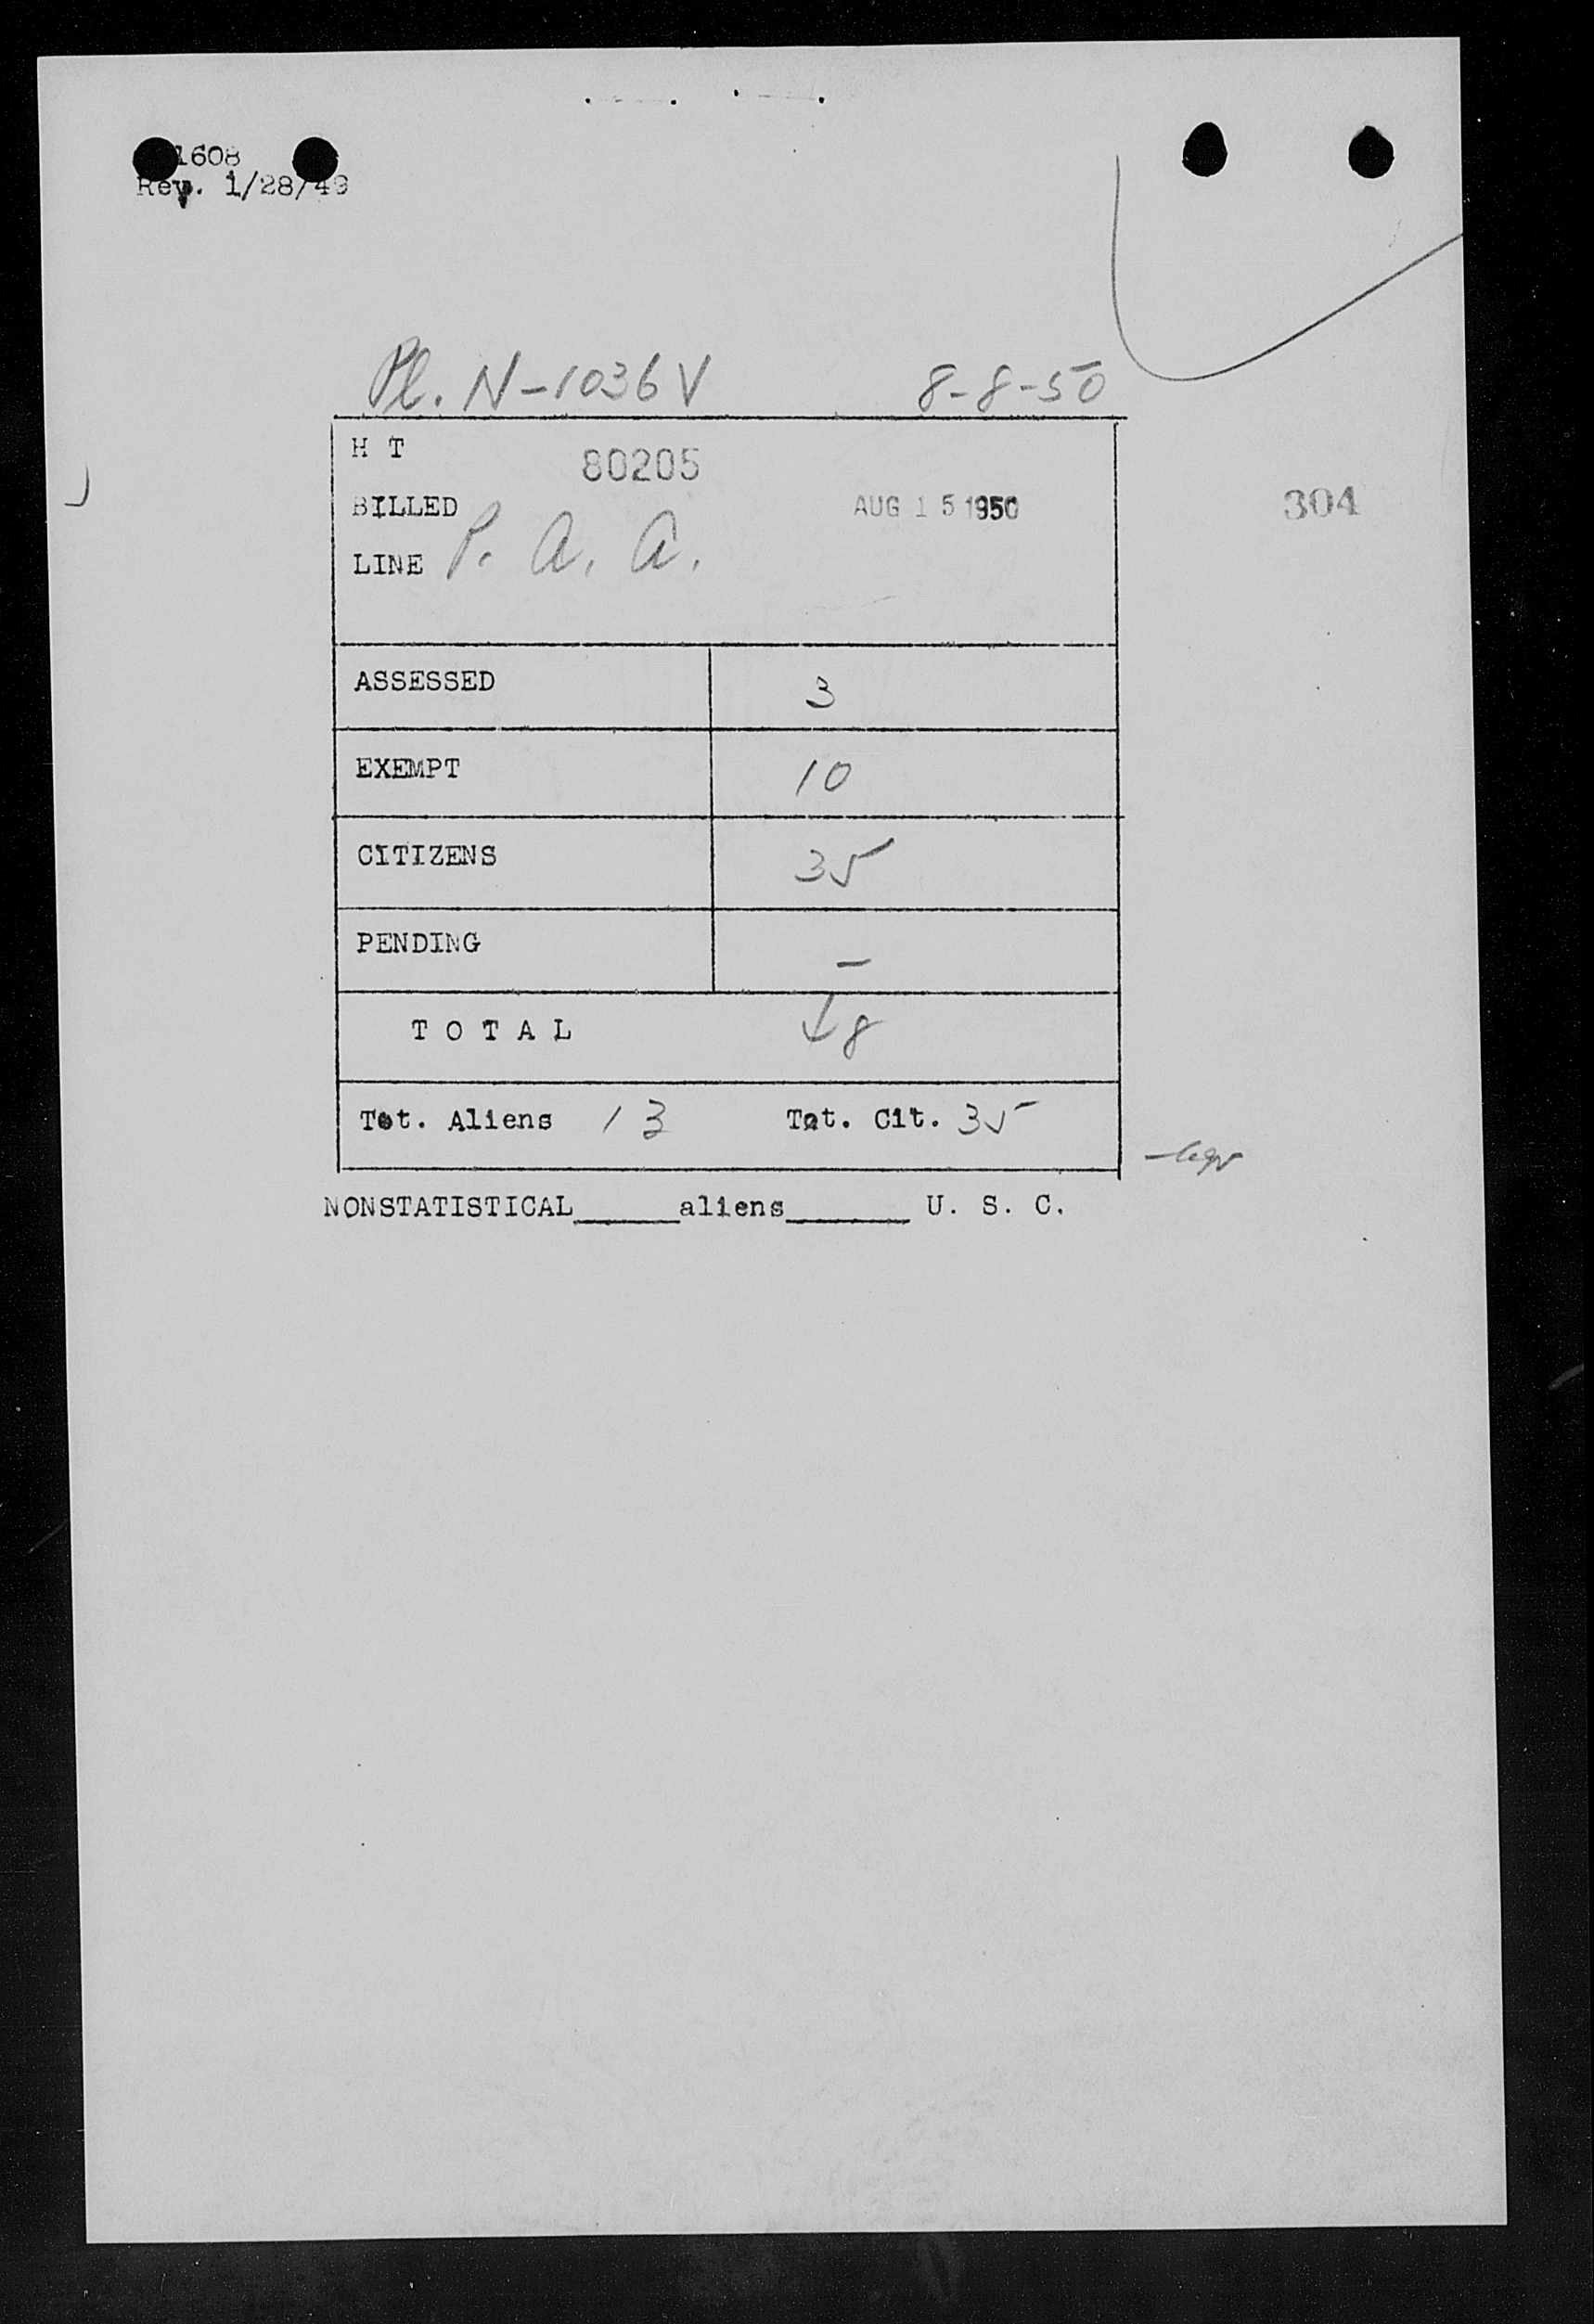 1608
Rev. 1/28/49
Pl. N-1036V 8-8-50
H T 80205
BILLED AUG 15 1950 304
LINE P. A. A.
ASSESSED 3
EXEMPT 10
CITIZENS 35
PENDING –
T O T A L 48
Tot. Aliens 13 Tot. Cit. 35
NONSTATISTICAL_____aliens______ U. S. C.